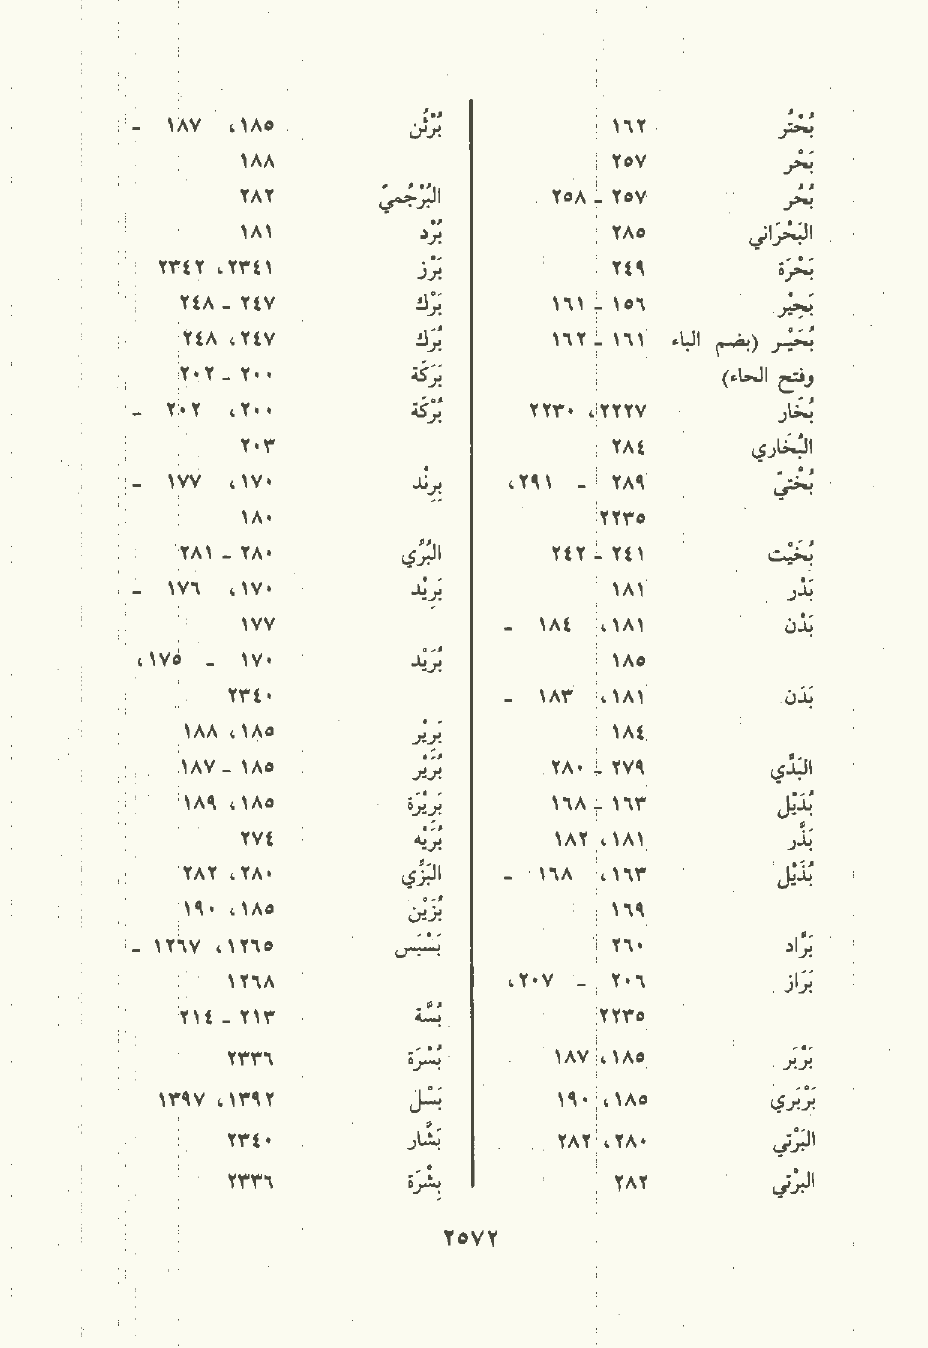 بُحْتُر ١٦٢
بَحْر ٢٥٧
بُحُر ٢٥٧ - ٢٥٨
البَحْرَاني ٢٨٥
بَحْرَة ٢٤٩
بَحِيْر ١٥٦ - ١٦١
بُحَيْر (بضم الباء ١٦١ - ١٦٢
وفتح الحاء)
بُخَار ٢٢٢٧، ٢٢٣٠
البُخَاري ٢٨٤
بُخْتيّ ٢٨٩ - ٢٩١،
٢٢٣٥
بُخَيْت ٢٤١ - ٢٤٢
بَدْر ١٨١
بَدْن ١٨١، ١٨٤ -
١٨٥
بَدَن ١٨١، ١٨٣ -
١٨٤
البَدَّي ٢٧٩ - ٢٨٠
بُدَيْل ١٦٣ - ١٦٨
بَذَّر ١٨١، ١٨٢
بُذَيْل ١٦٣، ١٦٨ -
١٦٩
بَرَّاد ٢٦٠
بَرَاز ٢٠٦ - ٢٠٧،
٢٢٣٥
بَرْبَر ١٨٥، ١٨٧
بَرْبَري ١٨٥، ١٩٠
البَرْتي ٢٨٠، ٢٨٢
البرْتي ٢٨٢
بُرْثُن ١٨٥، ١٨٧ -
١٨٨
البُرْجُميّ ٢٨٢
بُرْد ١٨١
بَرْز ٢٣٤١، ٢٣٤٢
بَرْك ٢٤٧ - ٢٤٨
بُرَك ٢٤٧، ٢٤٨
بَرَكَة ٢٠٠ - ٢٠٢
بُرْكَة ٢٠٠، ٢٠٢ -
٢٠٣
بِرِنْد ١٧٠، ١٧٧ -
١٨٠
البُرُي ٢٨٠ - ٢٨١
بَرِيْد ١٧٠، ١٧٦ -
١٧٧
بُرَيْد ١٧٠ - ١٧٥،
٢٣٤٠
بَرِيْر ١٨٥، ١٨٨
بُرَيْر ١٨٥ - ١٨٧
بَرِيْرَة ١٨٥، ١٨٩
بُرَيْه ٢٧٤
البَزِّي ٢٨٠، ٢٨٢
بُزَيْن ١٨٥، ١٩٠
بَسْبَس ١٢٦٥، ١٢٦٧ -
١٢٦٨
بُسَّة ٢١٣ - ٢١٤
بُسْرَة ٢٣٣٦
بَسْل ١٣٩٢، ١٣٩٧
بَشَّار ٢٣٤٠
بِشْرَة ٢٣٣٦
٢٥٧٢